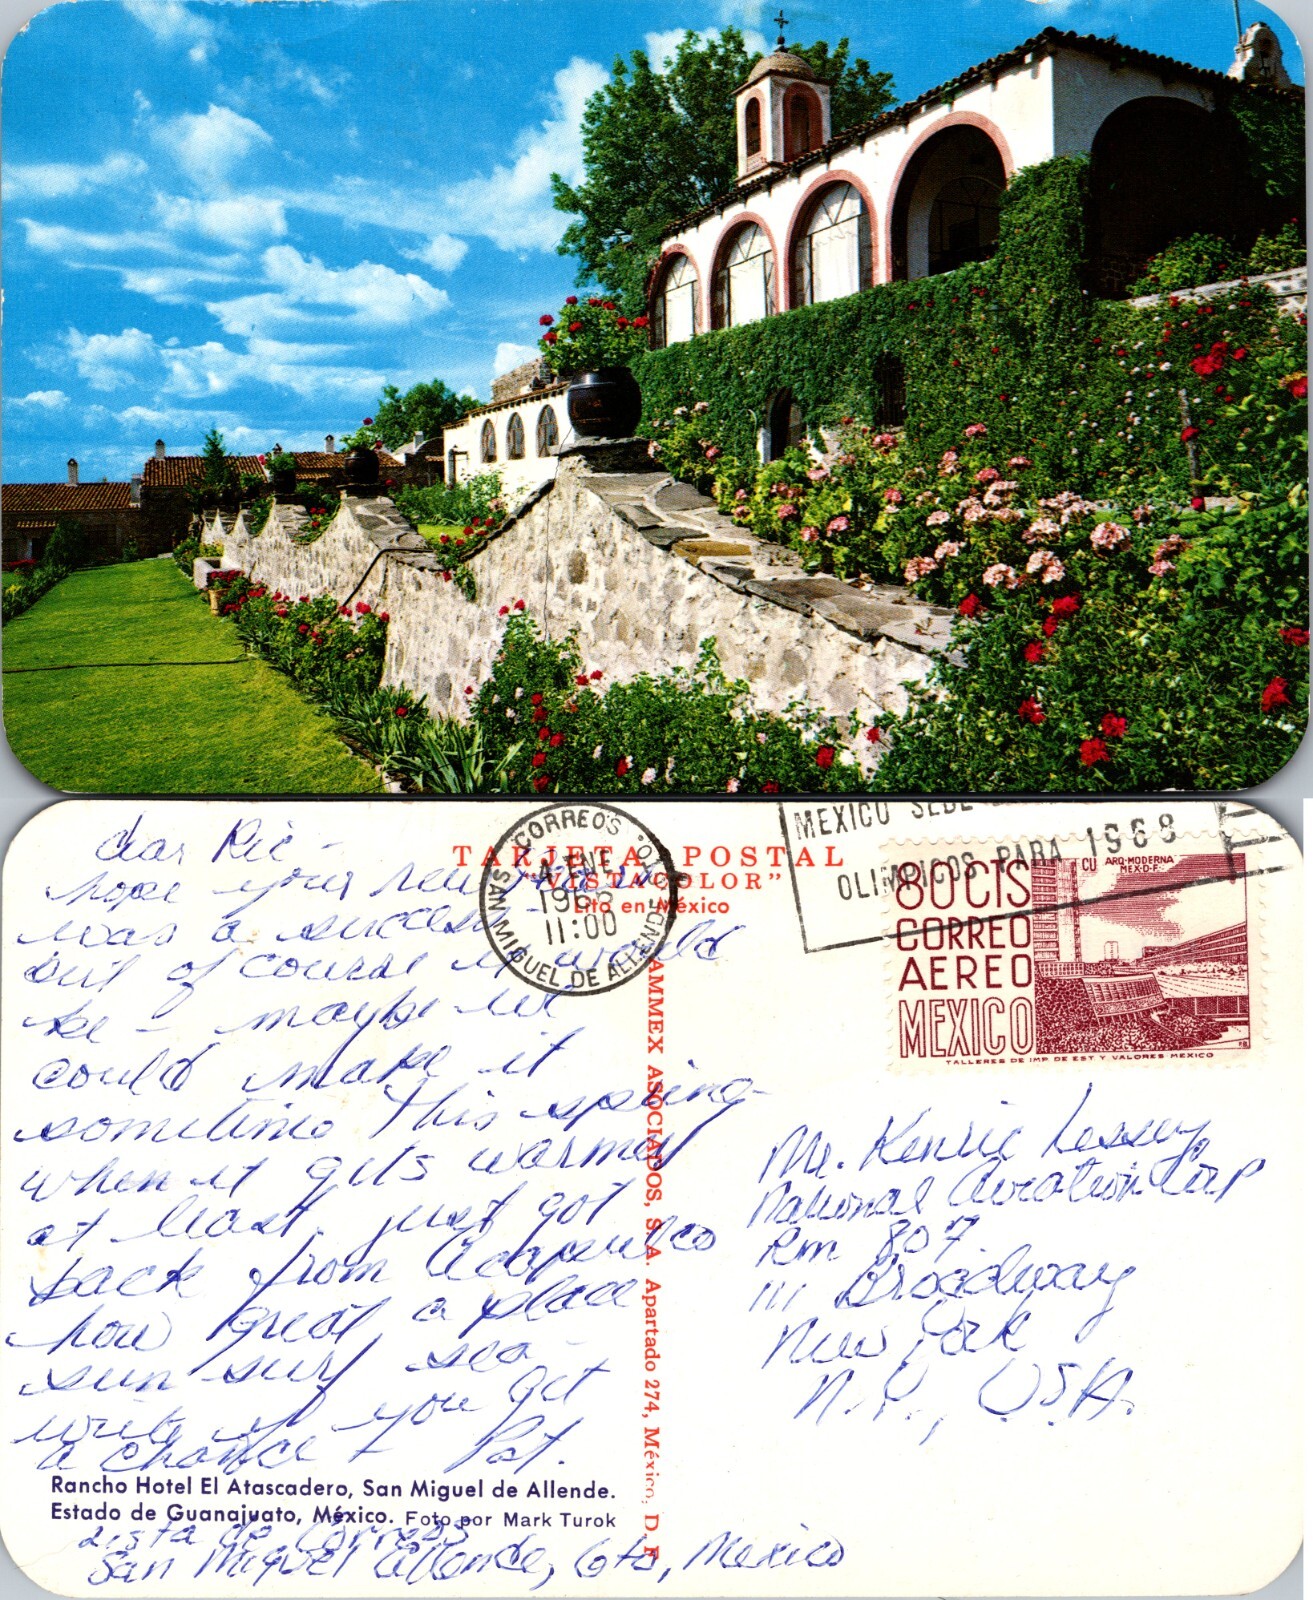 TARJETA POSTAL
"VISTACOLOR"
Lito en México
CORREOS
4 ENE
11:00
SAN MIGUEL DE ALLENDE
MEXICO SEDE
OLIMPICOS PARA 1968
80 CTS
CORREO
AEREO
MEXICO
CU ARQ·MODERNA
MEX·D·F·
TALLERES DE IMP. DE EST. Y VALORES·MEXICO
dear Ric -
hope your new
was a success -
but of course it would
be - maybe we
could make it
sometime this spring -
when it gets warmer
at least. just got
back from Acapulco
how great a place
sun surf sea -
write if you get
a chance - Pat.
AMMEX ASOCIADOS, S.A. Apartado 274, México, D.F.
Mr. Kenric Lessey
National Aviation Corp
Rm 807
111 Broadway
New York
N.Y., USA.
Rancho Hotel El Atascadero, San Miguel de Allende.
Estado de Guanajuato, México. Foto por Mark Turok
Lista de Correos
San Miguel Allende, Gto, Mexico